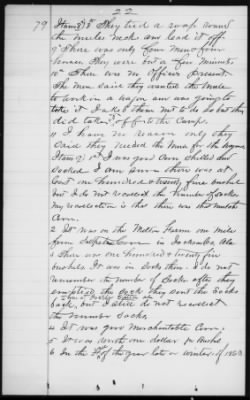 22
79 Item 8 8th They tied a rope around
the mules neck and lead it off.
9 There was only four men & four
horses they were but a few minutes.
10th There was no officers present.
The men said they wanted the mule
to work in a wagon and was going to
take it I asked them not to do so but they
did take it off to the Camp.
11 I have no reason only they
said they needed the mule for the wagons
Item 9 1st I was good corn shelled and
sacked I am sure there was at
least one hundred & twenty five bushels
but I do not recollect the number of sacks
my recollection is that there was that much
corn.
2 It was on the Farm one mile
from in Ala
3 There was one hundred & twenty five
bushels It was in sacks then. I do not
remember the number of sacks after they
emptied the sack they sent the sacks
back, but I still do not recollect
the number sacks.
4 It was good merchantable corn.
5 It was worth one dollar per bushel
6 In the of the year late or winter of 1863